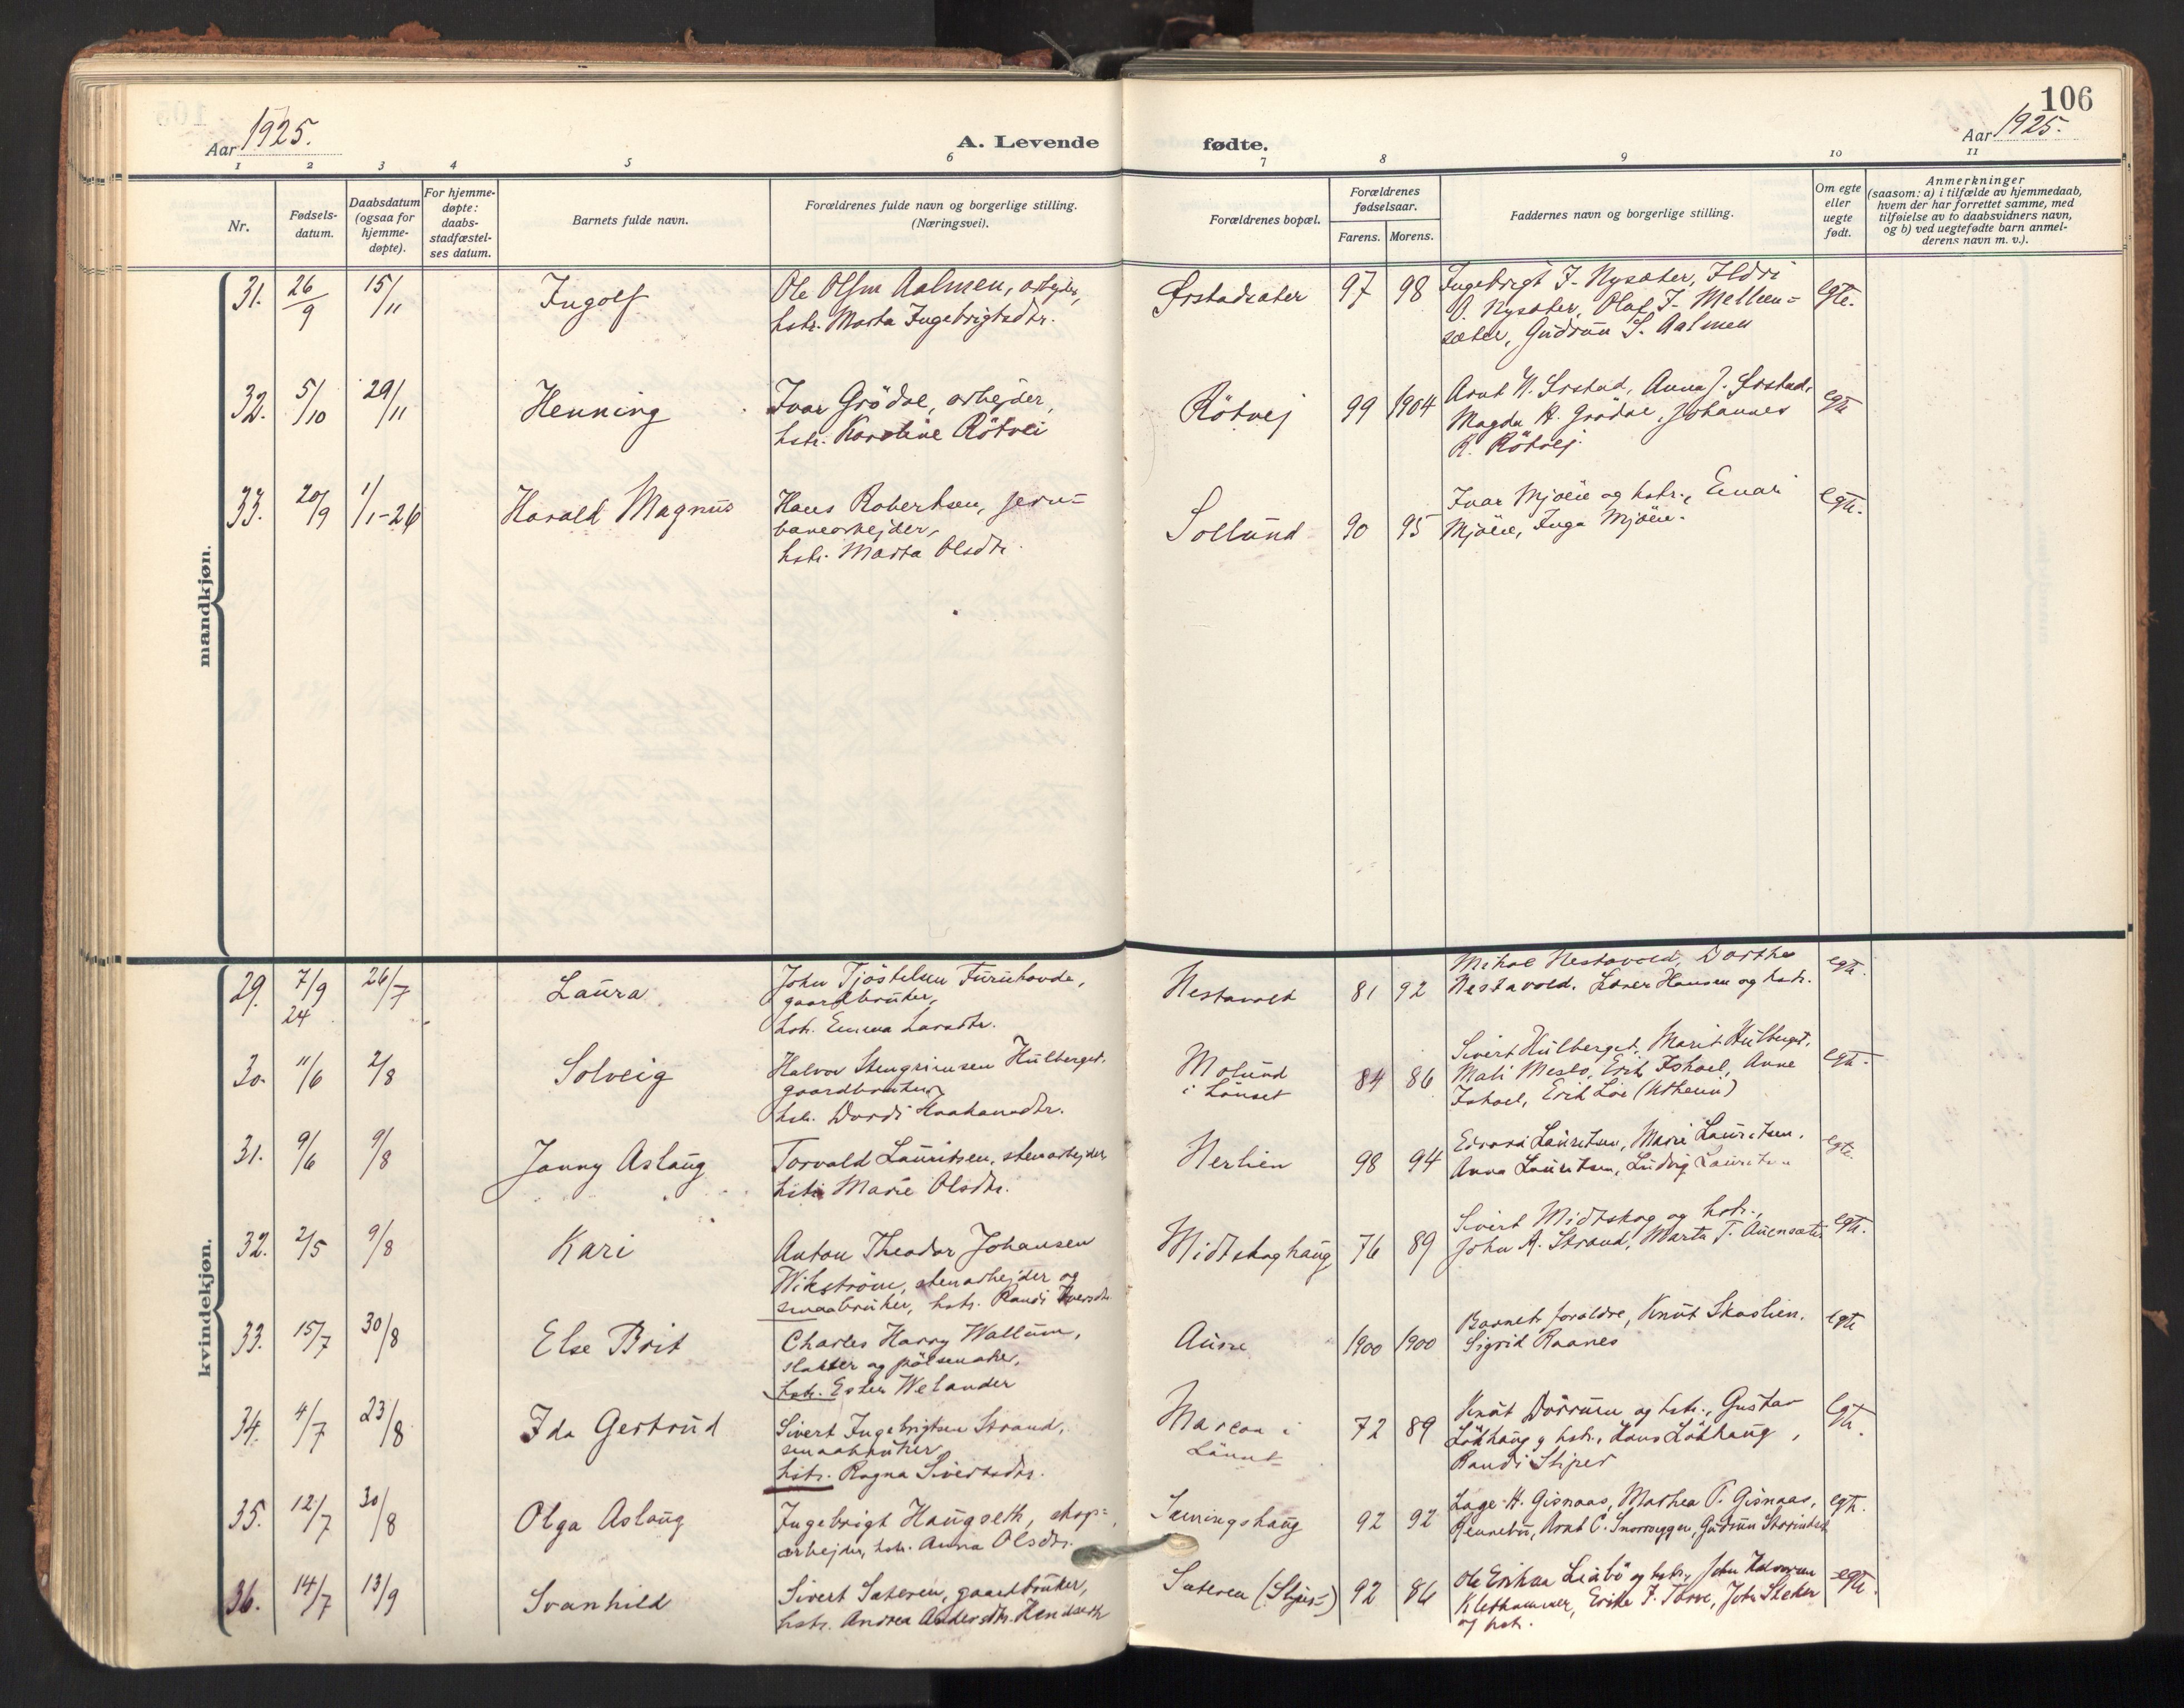 106
Aar 1925.
A. Levende
fødte.
Aar 1925.
1 2 3 4 5 6 7 8 9 10 11
Nr.
Fødsels-
datum.
Daabsdatum
(ogsaa for
hjemme-
døpte).
For hjemme-
døpte:
daabs-
stadfæstel-
ses datum.
Barnets fulde navn.
Forældrenes fulde navn og borgerlige stilling.
(Næringsvei).
Forældrenes bopæl.
Forældrenes
fødselsaar.
Farens. Morens.
Faddernes navn og borgerlige stilling.
Om egte
eller
uegte
født.
Anmerkninger
(saasom: a) i tilfælde av hjemmedaab,
hvem der har forrettet samme, med
tilføielse av to daabsvidners navn,
og b) ved uegtefødte barn anmel-
derens navn m. v.).
mandkjøn.
31. 26/9 15/11 Ingolf
Ole Olsen Aalmen, arbejder,
hstr. Marta Ingebrigtsdtr.
Ørstadsæter 97 98
Ingebrigt I. Nysæter, Ildri
O. Nysæter, Olaf I. Mellem=
sæter, Gudrun S. Aalmen
egte.
32. 5/10 29/11 Henning
Ivar Grödve, arbejder,
hstr. Karoline Rötvei
Rötvej 99 1904
Arnt N. Ørstad, Anna J. Ørstad,
Magda H. Grödve, Johannes
R. Rötvej
egte
33. 20/9 1/1-26 Harald Magnus
Hans Robertsen, jern=
banearbejder,
hstr. Marta Olsdtr.
Sollund 90 95
Ivar Mjøen og hstr., Einar
Mjøen, Inga Mjøen.
egte.
kvindekjøn.
29. 7/9 24 26/7 Laura
John Tjöstelsen Furuhovde,
gaardbruker,
hstr. Emma Larsdtr.
Nestavold 81 92
Mikal Nestavold, Dorthe
Nestavold. Edver Hansen og hstr.
egte.
30. 11/6 2/8 Solveig
Halvor Stengrimsen Hulberget.
gaardbruker
hstr. Dordi Haakansdtr.
Molund
i Lönset
84 86
Sivert Hulberget, Marit Hulberget,
Mali Meslo, Erik Ishoel, Anne
Ishoel, Erik Loe (Utheim)
egte.
31. 9/6 9/8 Janny Aslaug
Torvald Lauritsen, stenarbejder
hstr. Marie Olsdtr.
Nerlien 98 94
Edvard Lauritsen, Marie Lauritsen.
Anna Lauritsen, Ludvig Lauritsen
egte.
32. 2/5 9/8 Kari
Anton Theodor Johansen
Wikström, stenarbejder og
smaabruker, hstr. Randi Iversdtr.
Midtskoghaug 76 89
Sivert Midtskog og hstr.,
John A. Strand, Marta T. Auensæter
egte.
33. 15/7 30/8 Else Brit
Charles Harry Wallum,
slakter og pölsemaker,
hstr. Ester Welander
Aune 1900 1900
Barnets forældre, Knut Skaslien.
Sigrid Raanes
egte
34. 4/7 23/8 Ida Gertrud
Sivert Ingebrigtsen Strand,
smaabruker
hstr. Ragna Sivertsdtr.
72 89
Knut Dörrum og hstr., Gustav
Lökhaug og hstr., Hans Lökhaug,
Randi Stiper
egte.
35. 12/7 30/8 Olga Aslaug
Ingebrigt Haugseth, skop=
arbejder, hstr. Anna Olsdtr.
92 92
Lage H. Gisnaas, Mathea P. Gisnaas,
Rennebu, Arnt C. Snorroeggen, Gudrun
egte.
36. 14/7 13/9 Svanhild
Sivert Sæteren, gaardbruker,
hstr. Andrea Andersdtr.
Sæteren 92 86
Ole Eriksen Liabö og hstr., John Halvorsen
Klethammer, Erik J. Torve, John Sleker
og hstr.
egte.